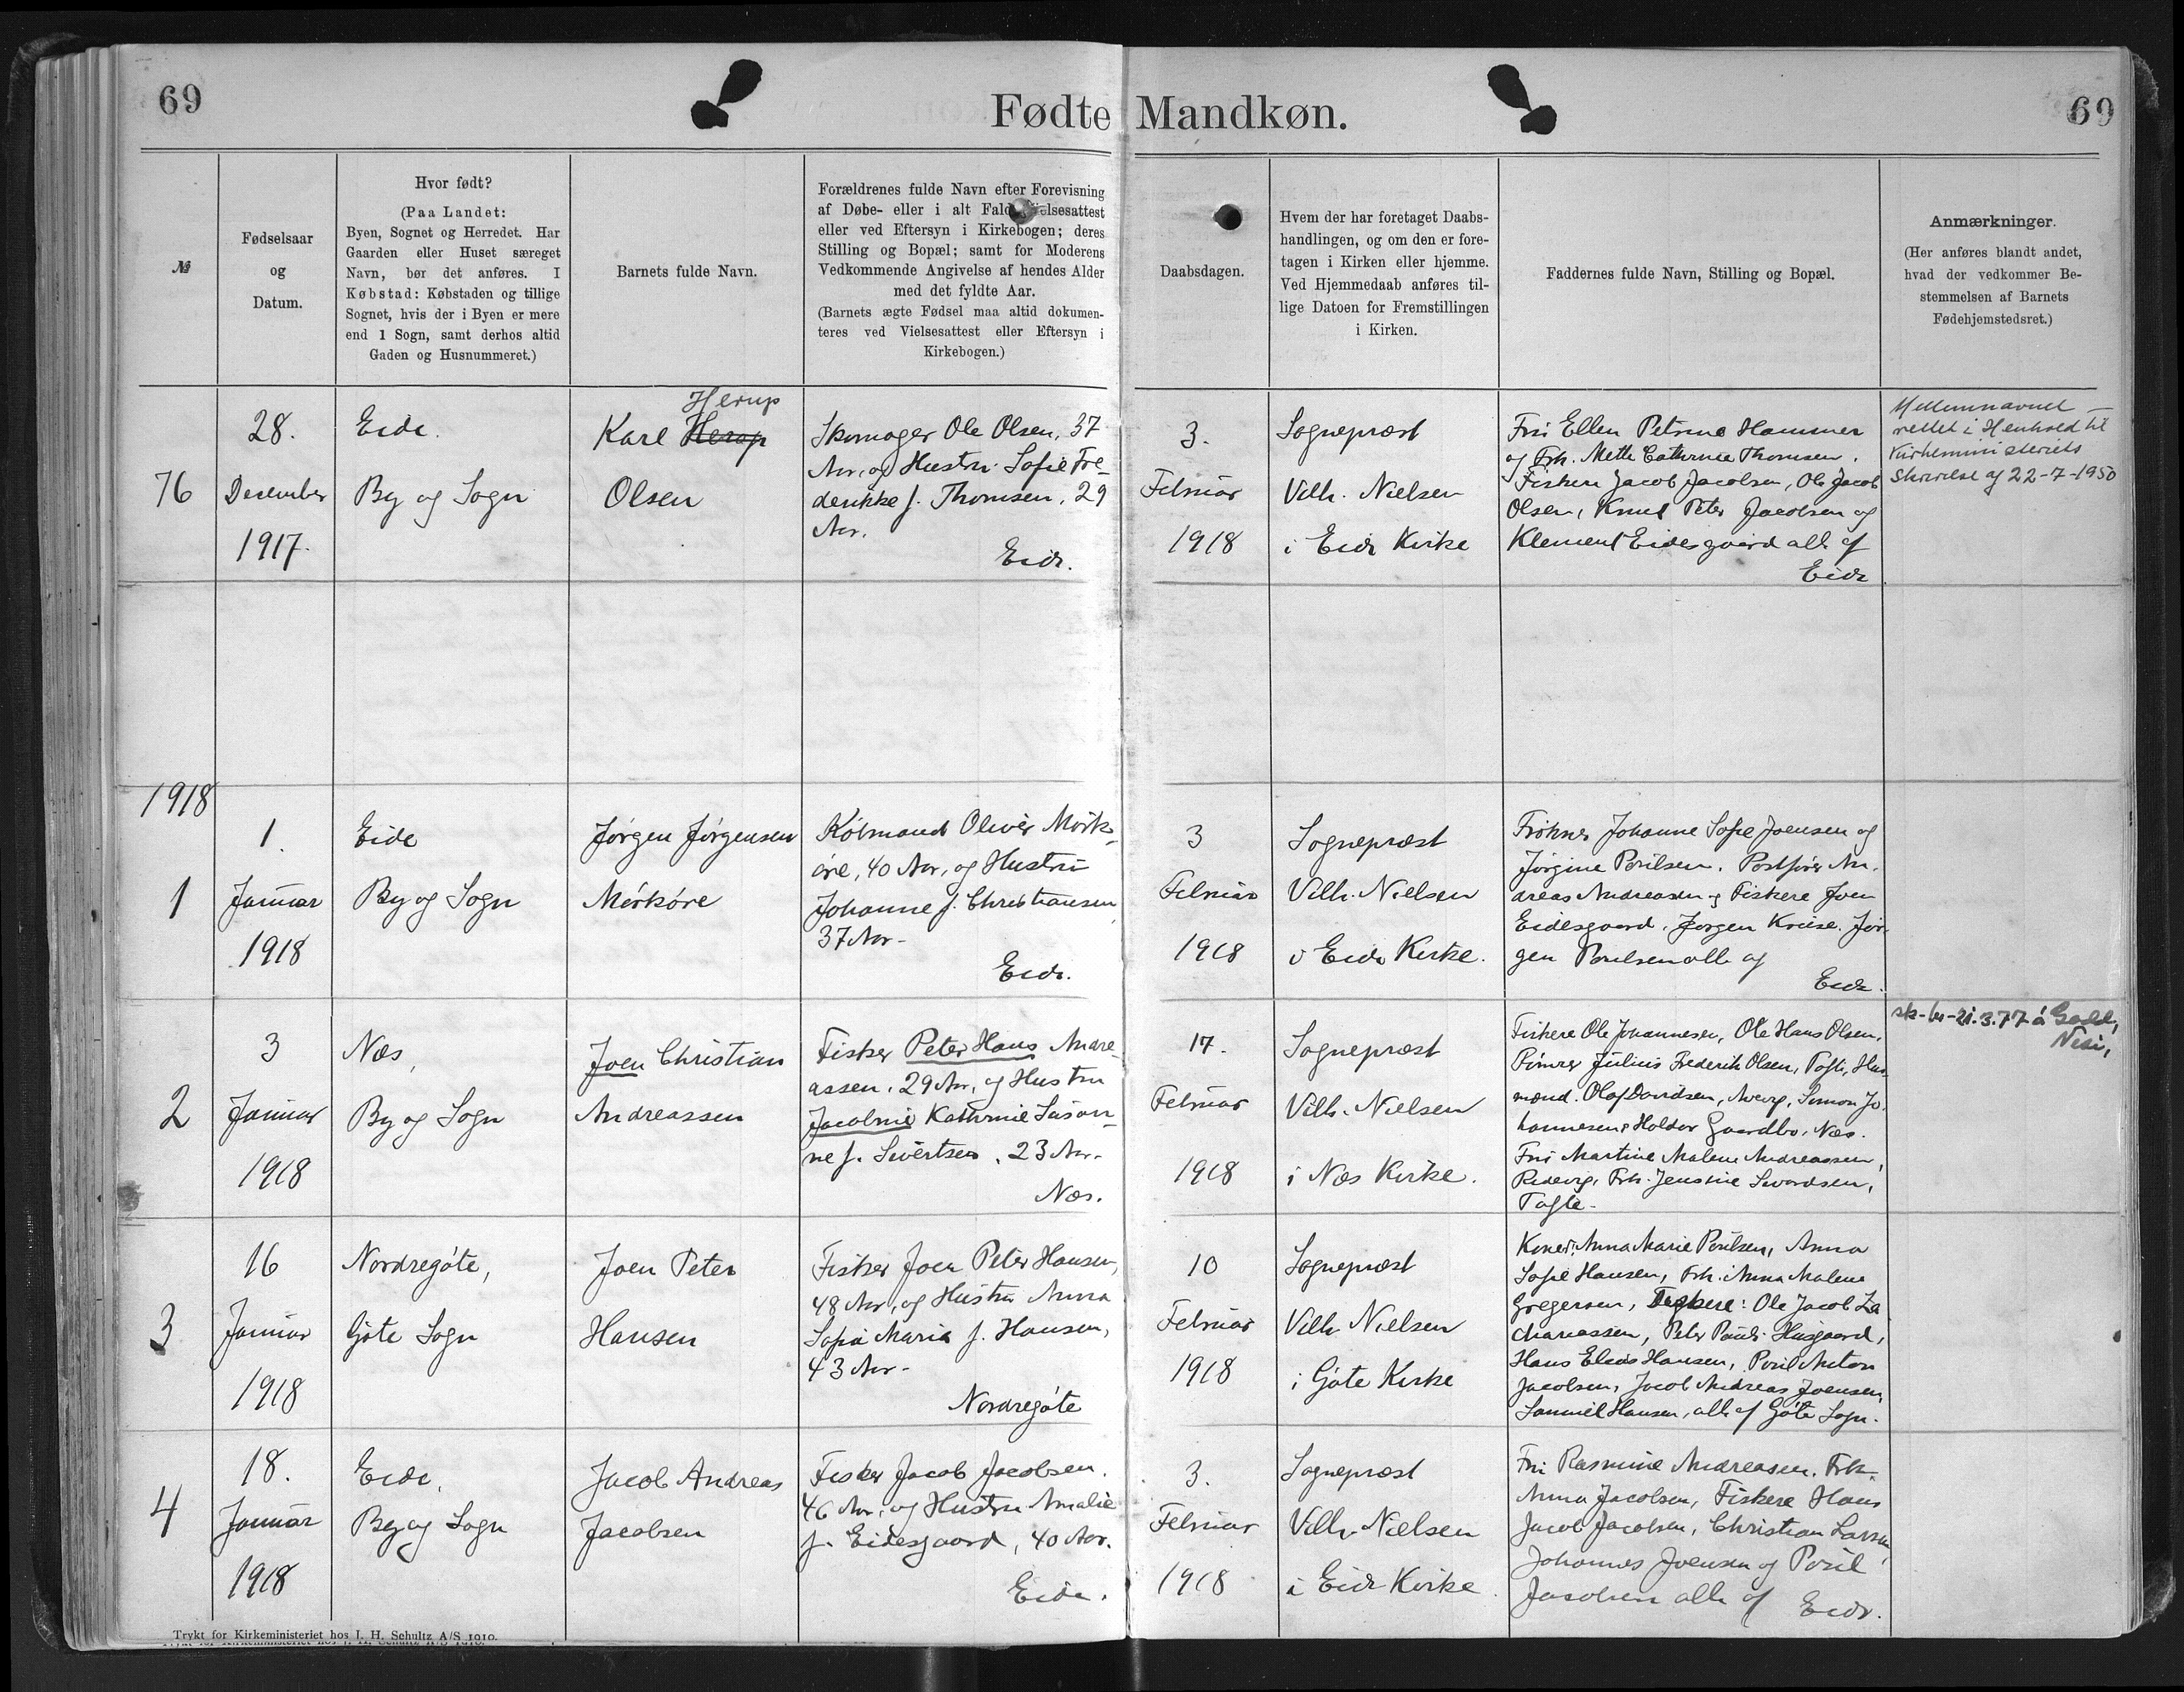 69
Fødte Mandkøn.
69
№
Fødselsaar
og
Datum.
Hvor født?
(Paa Landet:
Byen, Sognet og Herredet. Har
Gaarden eller Huset særeget
Navn, bør det anføres. I
Købstad: Købstaden og tillige
Sognet, hvis der i Byen er mere
end 1 Sogn, samt derhos altid
Gaden og Husnummeret.)
Barnets fulde Navn.
Forældrenes fulde Navn efter Forevisning
af Døbe- eller i alt Fald
eller ved Eftersyn i Kirkebogen; deres
Stilling og Bopæl; samt for Moderens
Vedkommende Angivelse af hendes Alder
med det fyldte Aar.
(Barnets ægte Fødsel maa altid dokumen-
teres ved Vielsesattest eller Eftersyn i
Kirkebogen.)
Daabsdagen.
Hvem der har foretaget Daabs-
handlingen, og om den er fore-
tagen i Kirken eller hjemme.
Ved Hjemmedaab anføres til-
lige Datoen for Fremstillingen
i Kirken.
Faddernes fulde Navn, Stilling og Bopæl.
Anmærkninger.
(Her anføres blandt andet,
hvad der vedkommer Be-
stemmelsen af Barnets
Fødehjemstedsret.)
76
28.
December
1917.
Eide.
By og Sogn
Herup
Karl Herop
Olsen
Skomager Ole Olsen, 37
Aar, og Hustru Sofie Fre-
derikke f. Thomsen, 29
Aar.
Eide.
3.
Februar
1918
Sognepræst
Vilh. Nielsen
i Eide Kirke
Fru Ellen Petrine Hammer
og Frk. Mette Cathrine Thomsen.
Fiskere Jacob Jacobsen, Ole Jacob
Olsen, Knud Peter Jacobsen og
Klement Eidesgaard alle af
Eide
Mellemnavnet
rettet i Henhold til
Kirkeministeriets
Skrivelse af 22-7-1950
1918
1
1.
Januar
1918
Eide
By og Sogn
Jørgen Jørgensen
Mørkøre
Købmand Oliver Mørk-
øre, 40 Aar, og Hustru
Johanne f. Christiansen
37 Aar.
Eide.
3
Februar
1918
Sognepræst
Vilh. Nielsen
i Eide Kirke.
Frøkner Johanne Sofie Joensen og
Jørgine Poulsen. Postfører An-
dreas Andreasen og Fiskere Joen
Eidesgaard, Jørgen Kruse, Jør-
gen Poulsen alle af
Eide.
2
3
Januar
1918
Næs,
By og Sogn
Joen Christian
Andreassen
Fisker Peter Hans Andre-
assen, 29 Aar, og Hustru
Jacobine Kathrine Susan-
ne f. Sivertsen, 23 Aar.
Næs.
17.
Februar
1918
Sognepræst
Vilh. Nielsen
i Næs Kirke.
Fiskere Ole Johannesen, Ole Hans Olsen,
Julius Frederik Olsen, Tofte, Hus-
mænd. Olaf Davidsen, Simon Jo-
hannesen, Holder Gaardbo, Næs.
Fru Martine Malene Andreassen,
Ridevig, Frk. Jensine Sivardsen,
Tofte.
21.3.77 á
3
16
Januar
1918
Nordregøte,
Gøte Sogn
Joen Peter
Hansen
Fisker Joen Peter Hansen,
48 Aar, og Hustru Anna
Sofia Maria f. Hansen,
43 Aar.
Nordregøte
10
Februar
1918
Sognepræst
Vilh Nielsen
i Gøte Kirke
Koner: Anna Marie Poulsen, Anna
Sofie Hansen, Frk. Anna Malene
Gregersen, Fiskere: Ole Jacob Za-
chariassen, Peter Pauli Husgaard,
Hans Elias Hansen, Poul Anton
Jacobsen, Jacob Andreas Joensen,
Samuel Hansen, alle af Gøte Sogn.
4
18.
Januar
1918
Eide.
By og Sogn
Jacob Andreas
Jacobsen
Fisker Jacob Jacobsen.
46 Aar, og Hustru Amalie
f. Eidesgaard, 40 Aar.
Eide.
3.
Februar
1918
Sognepræst
Vilh. Nielsen
i Eide Kirke.
Fru Rasmine Andreasen. Frk.
Anna Jacobsen, Fiskere Hans
Jacob Jacobsen, Christian Larsen,
Johannes Joensen og Poul
Jacobsen alle af Eide.
Trykt for Kirkeministeriet hos I. H. Schultz A/S 1910.